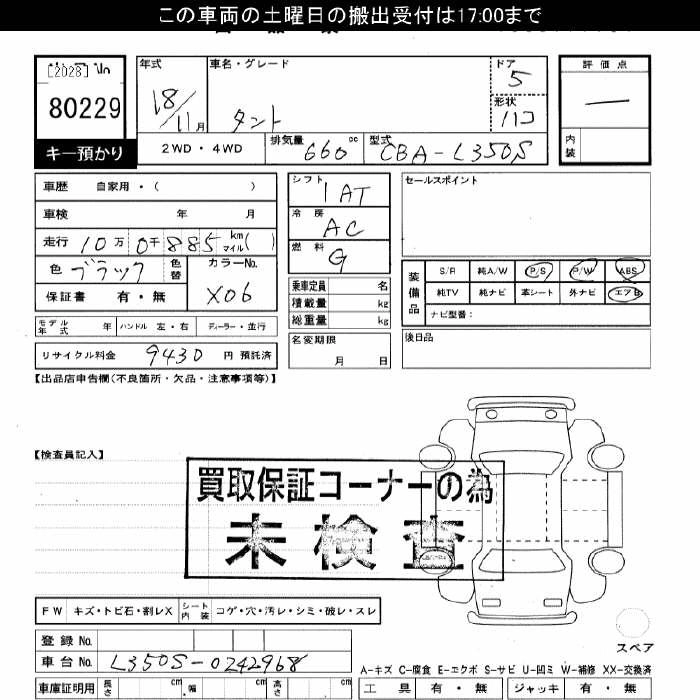 この車両の土曜日の搬出受付は17:00まで
[2028]
80229
キー預かり
年式
18/11月
車名・グレード
タント
ドア
5
形状
ハコ
2WD・4WD
排気量 660 cc
型式 CBA-L350S
評価点
―
内装
車歴 自家用・( )
車検 年 月
走行 10万0千885 km マイル( )
色 ブラック
色替
カラーNo.
X06
保証書 有・無
モデル年式 年 ハンドル 左・右 ディーラー・並行
リサイクル料金 9430 円 預託済
シフト
1AT
冷房
AC
燃料
G
乗車定員 名
積載量 kg
総重量 kg
名変期限
月 日
セールスポイント
装備品
S/R 純A/W P/S P/W ABS
純TV 純ナビ 革シート 外ナビ エアB
ナビ型番:
後日品
【出品店申告欄(不良箇所・欠品・注意事項等)】
【検査員記入】
買取保証コーナーの為
未検査
FW キズ・トビ石・割レX シート内装 コゲ・穴・汚レ・シミ・破レ・スレ
登録No.
車台No. L350S-0242968
車庫証明用 長さ cm 幅 cm 高さ cm
スペア
A-キズ C-腐食 E-エクボ S-サビ U-凹ミ W-補修 XX-交換済
工具 有・無 ジャッキ 有・無